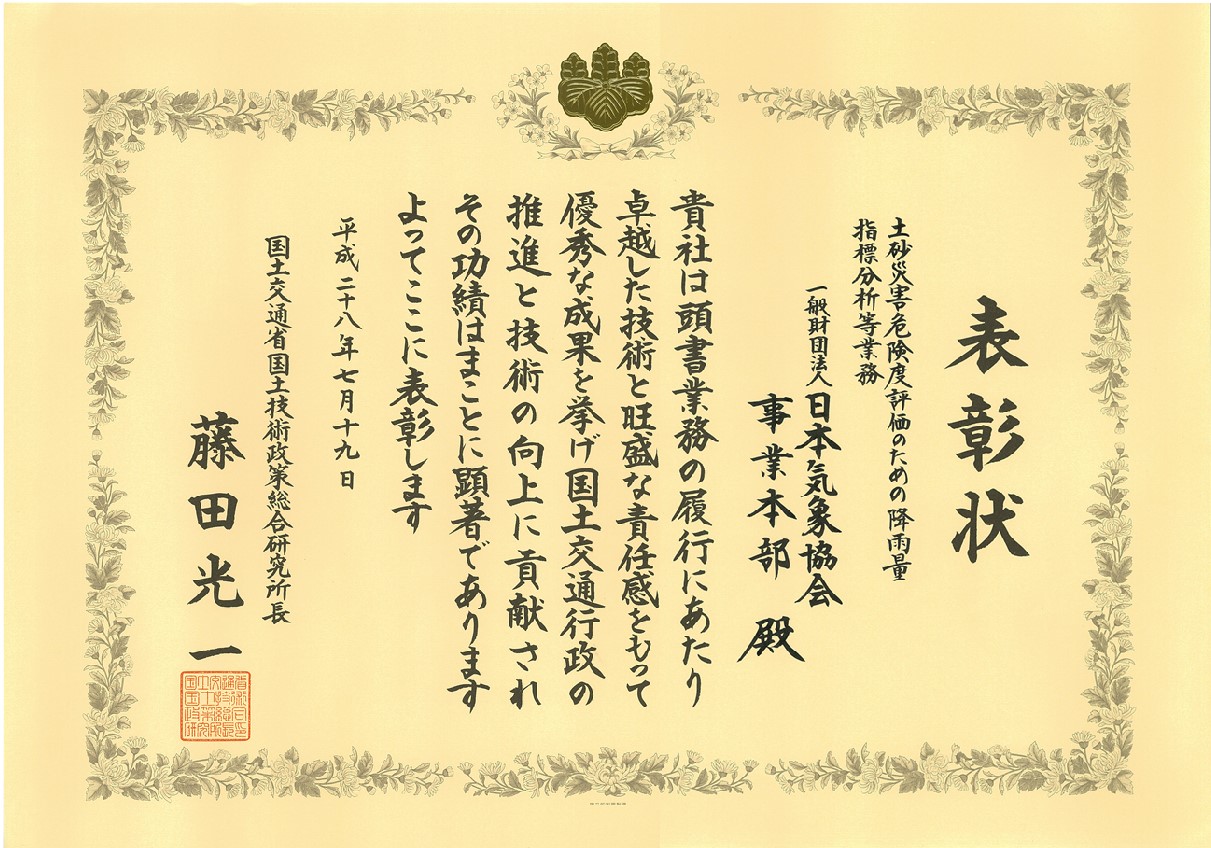 表彰状
土砂災害危険度評価のための降雨量
指標分析等業務
一般財団法人日本気象協会
事業本部 殿
貴社は頭書業務の履行にあたり
卓越した技術と旺盛な責任感をもって
優秀な成果を挙げ国土交通行政の
推進と技術の向上に貢献され
その功績はまことに顕著であります
よってここに表彰します
平成二十八年七月十九日
国土交通省国土技術政策総合研究所長
藤田光一